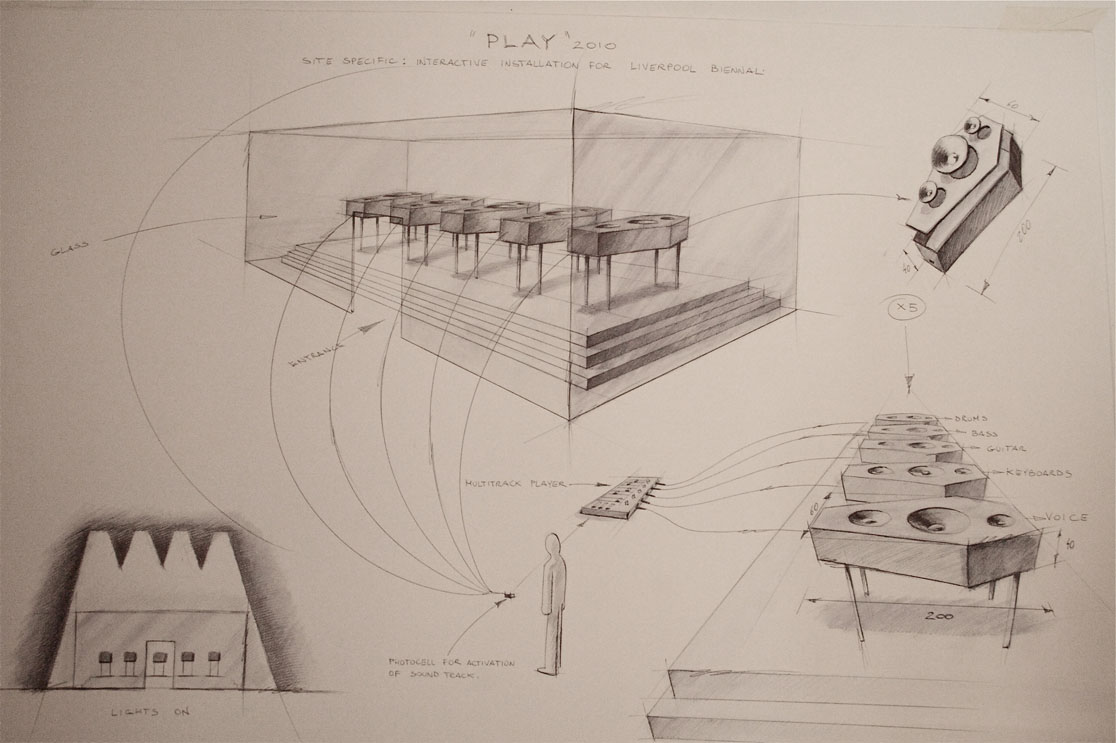 "PLAY" 2010
SITE SPECIFIC: INTERACTIVE INSTALLATION FOR LIVERPOOL BIENNAL.
60
200
40
GLASS
X5
ENTRANCE
DRUMS
BASS
GUITAR
KEYBOARDS
MULTITRACK PLAYER
60
VOICE
40
200
PHOTOCELL FOR ACTIVATION
OF SOUND TRACK.
LIGHTS ON